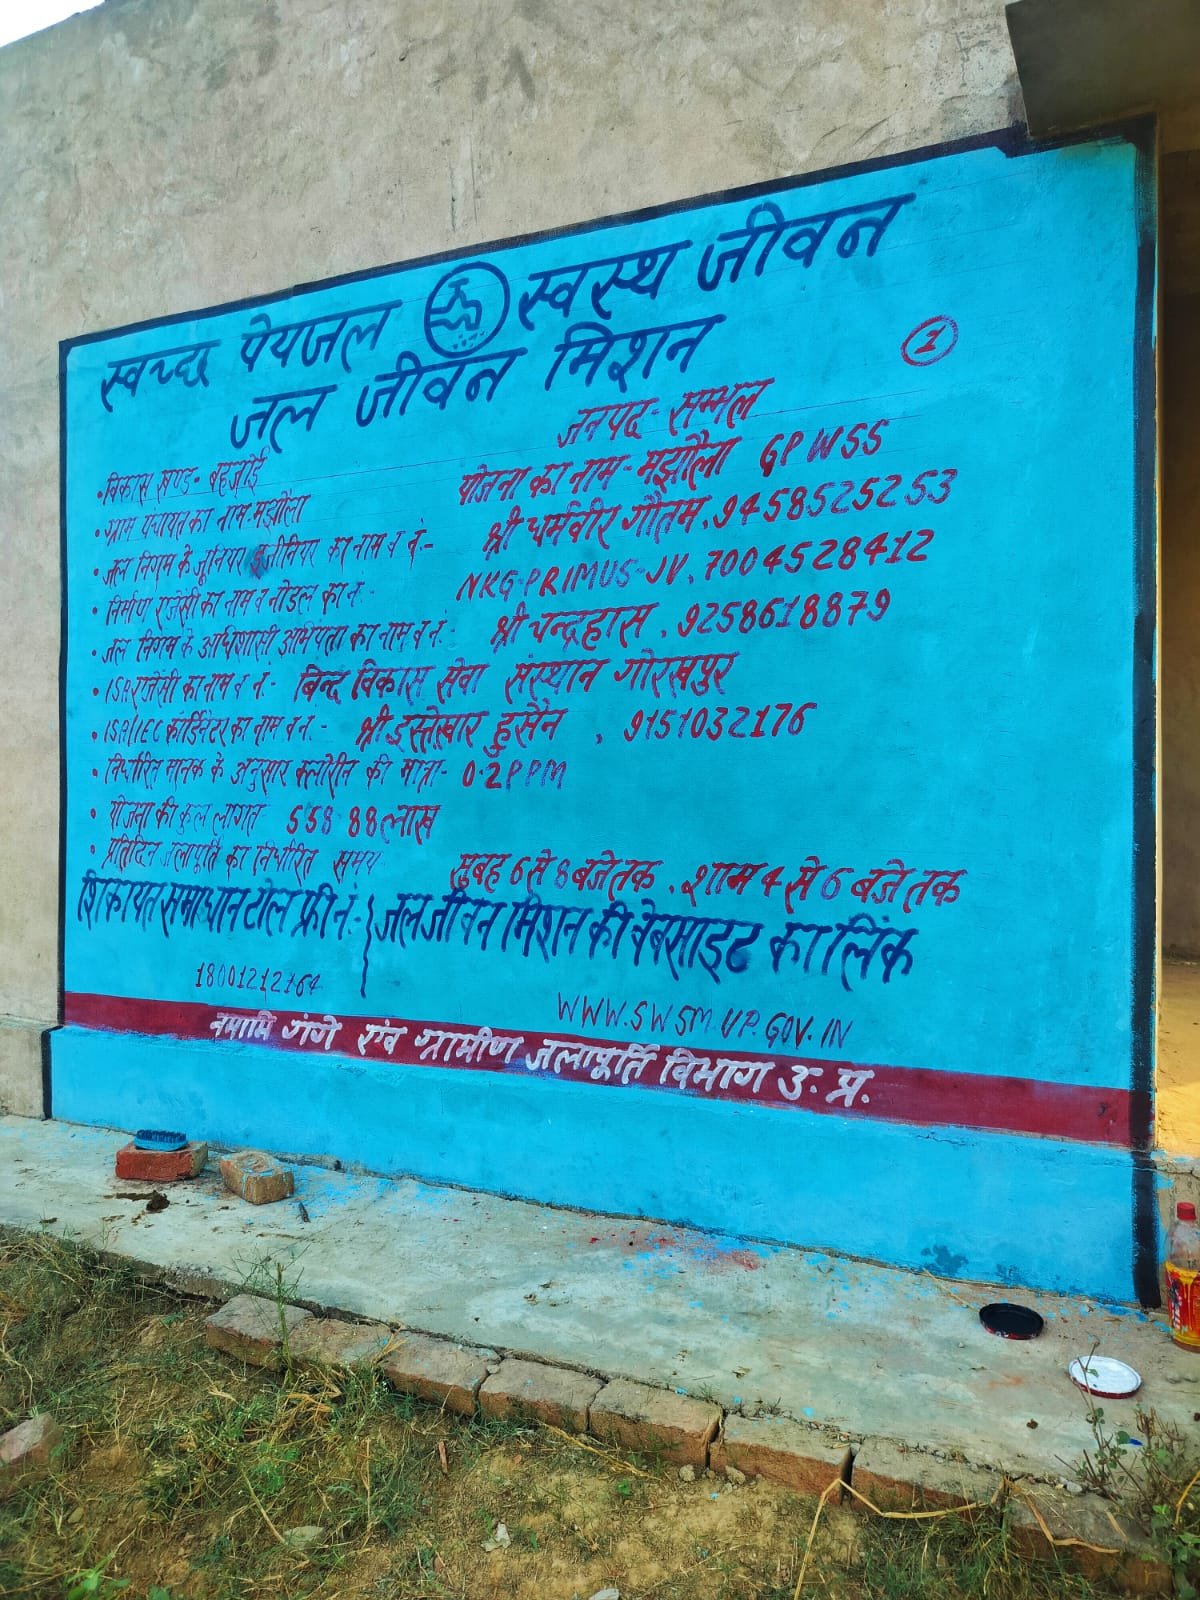 स्वच्छ पेयजल स्वस्थ जीवन
जल जीवन मिशन
1
जनपद- सम्भल
• विकास खण्ड- बहजोई
योजना का नाम- मझौला GPWSS
• ग्राम पंचायत का नाम- मझौला
• जल निगम के जूनियर इंजीनियर का नाम व नं:- श्री धर्मवीर गौतम, 9458525253
• निर्माण एजेंसी का नाम व नोडल का न.- NKG-PRIMUS-JV, 7004528412
• जल निगम के अधिशासी अभियंता का नाम व नं:- श्री चन्द्रहास , 9258618879
• ISA एजेंसी का नाम व नं:- बिन्द विकास सेवा संस्थान गोरखपुर
• ISA/IEC कॉर्डिनेटर का नाम व न.- श्री इस्तेखार हुसैन , 9151032176
• निर्धारित मानक के अनुसार क्लोरीन की मात्रा- 0.2PPM
• योजना की कुल लागत- 558.88 लाख
• प्रतिदिन जलापूर्ति का निर्धारित समय- सुबह 6 से 8 बजे तक , शाम 4 से 6 बजे तक
शिकायत समाधान टोल फ्री नं:-
18001212164
जल जीवन मिशन की वेबसाइट का लिंक
WWW.SWSM.UP.GOV.IN
नमामि गंगे एंव ग्रामीण जलापूर्ति विभाग उ. प्र.